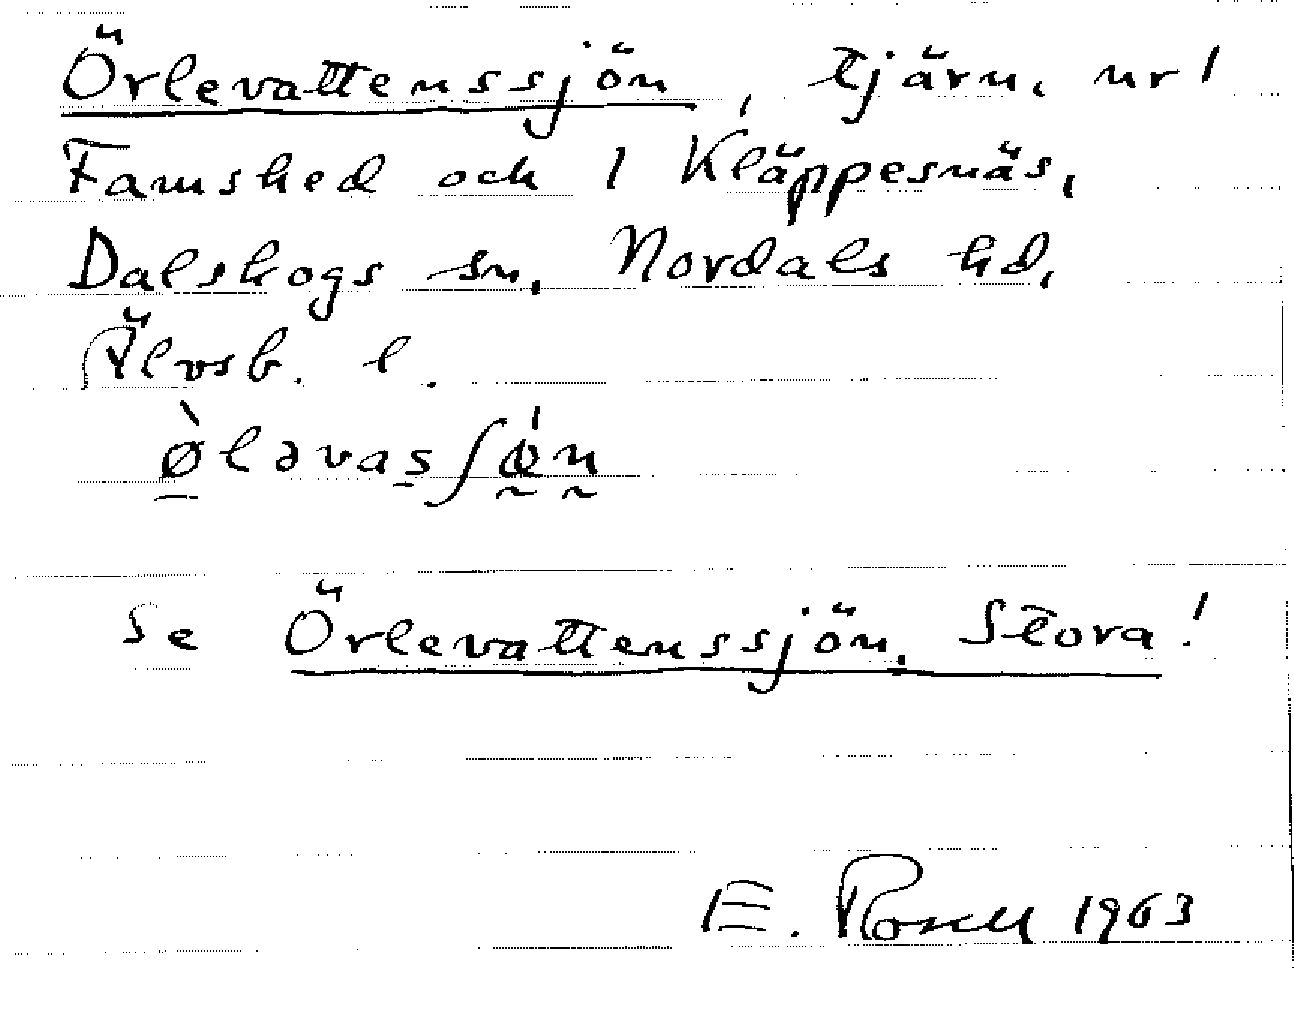 Örlevattenssjön, tjärn, nr 1
Famshed och 1 Kläppesnäs,
Dalskogs sn, Nordals hd,
Älvsb. l.
ø̀ləvasʃǿn
Se Örlevattenssjön, Stora!
E. Rosell 1963